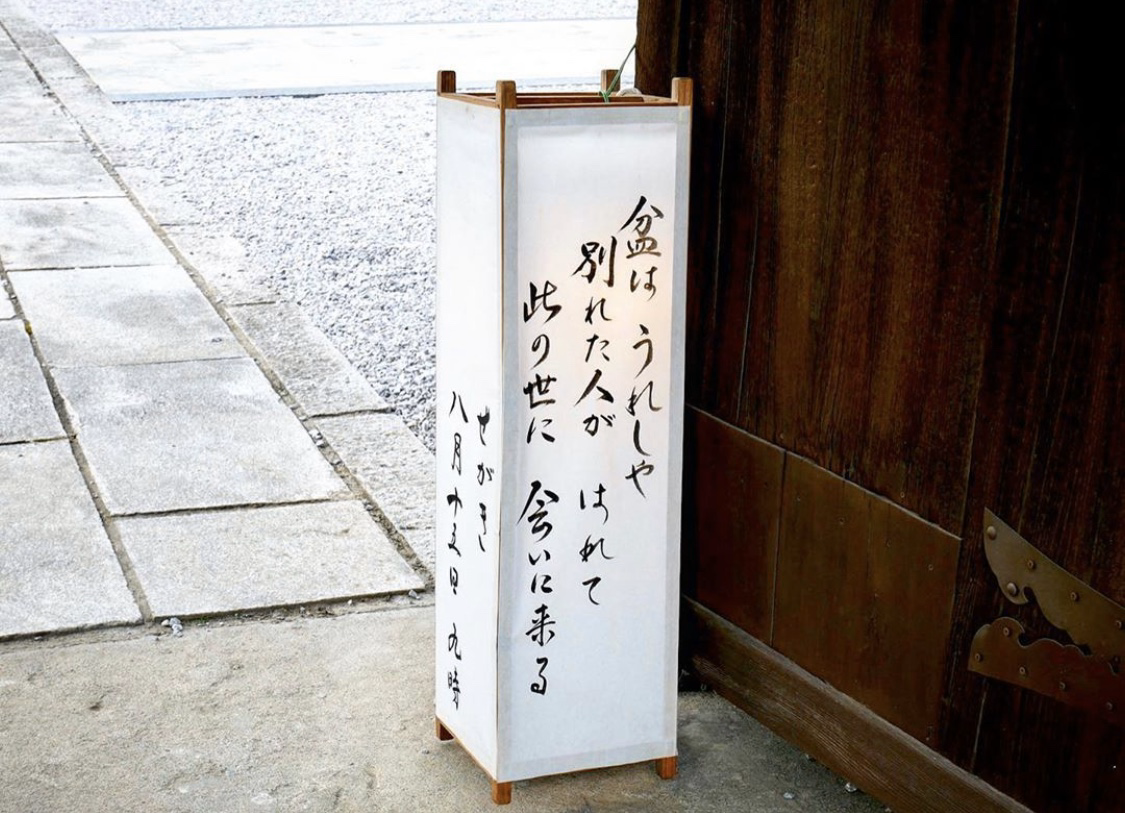 盆は うれしや
別れた人が はれて
此の世に 会いに来る
せがき
八月十五日 九時